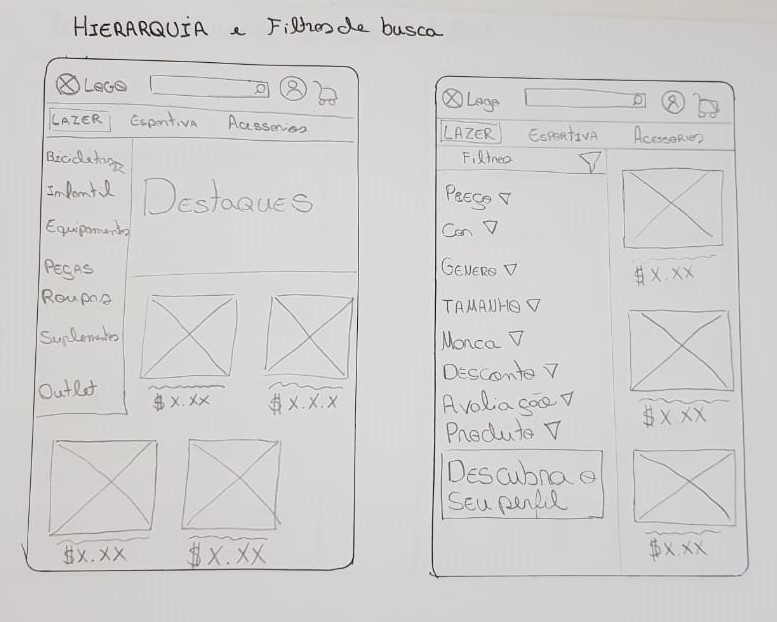 HIERARQUIA e Filtros de busca
LOGO
LAZER Esportiva Acessorios
Bicicletas
Infantil
Equipamentos
PEÇAS
Roupas
Suplementos
Outlet
DESTAQUES
$ X.XX $ X.X.X
$X.XX $X.XX
Logo
LAZER ESPORTIVA ACESSORIOS
Filtros
PREÇO
Cor
GENERO
TAMANHO
Marca
DESCONTO
Avaliação
Produto
DESCUBRA O
SEU perfil
$ X.XX
$X XX
$X.XX